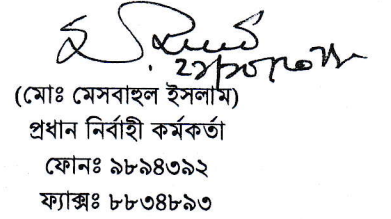 (মোঃ মেসবাহুল ইসলাম)
প্রধান নির্বাহী কর্মকর্তা
ফোনঃ ৯৮৯৪৩৯২
ফ্যাক্সঃ ৮৮৩৪৮৯৩